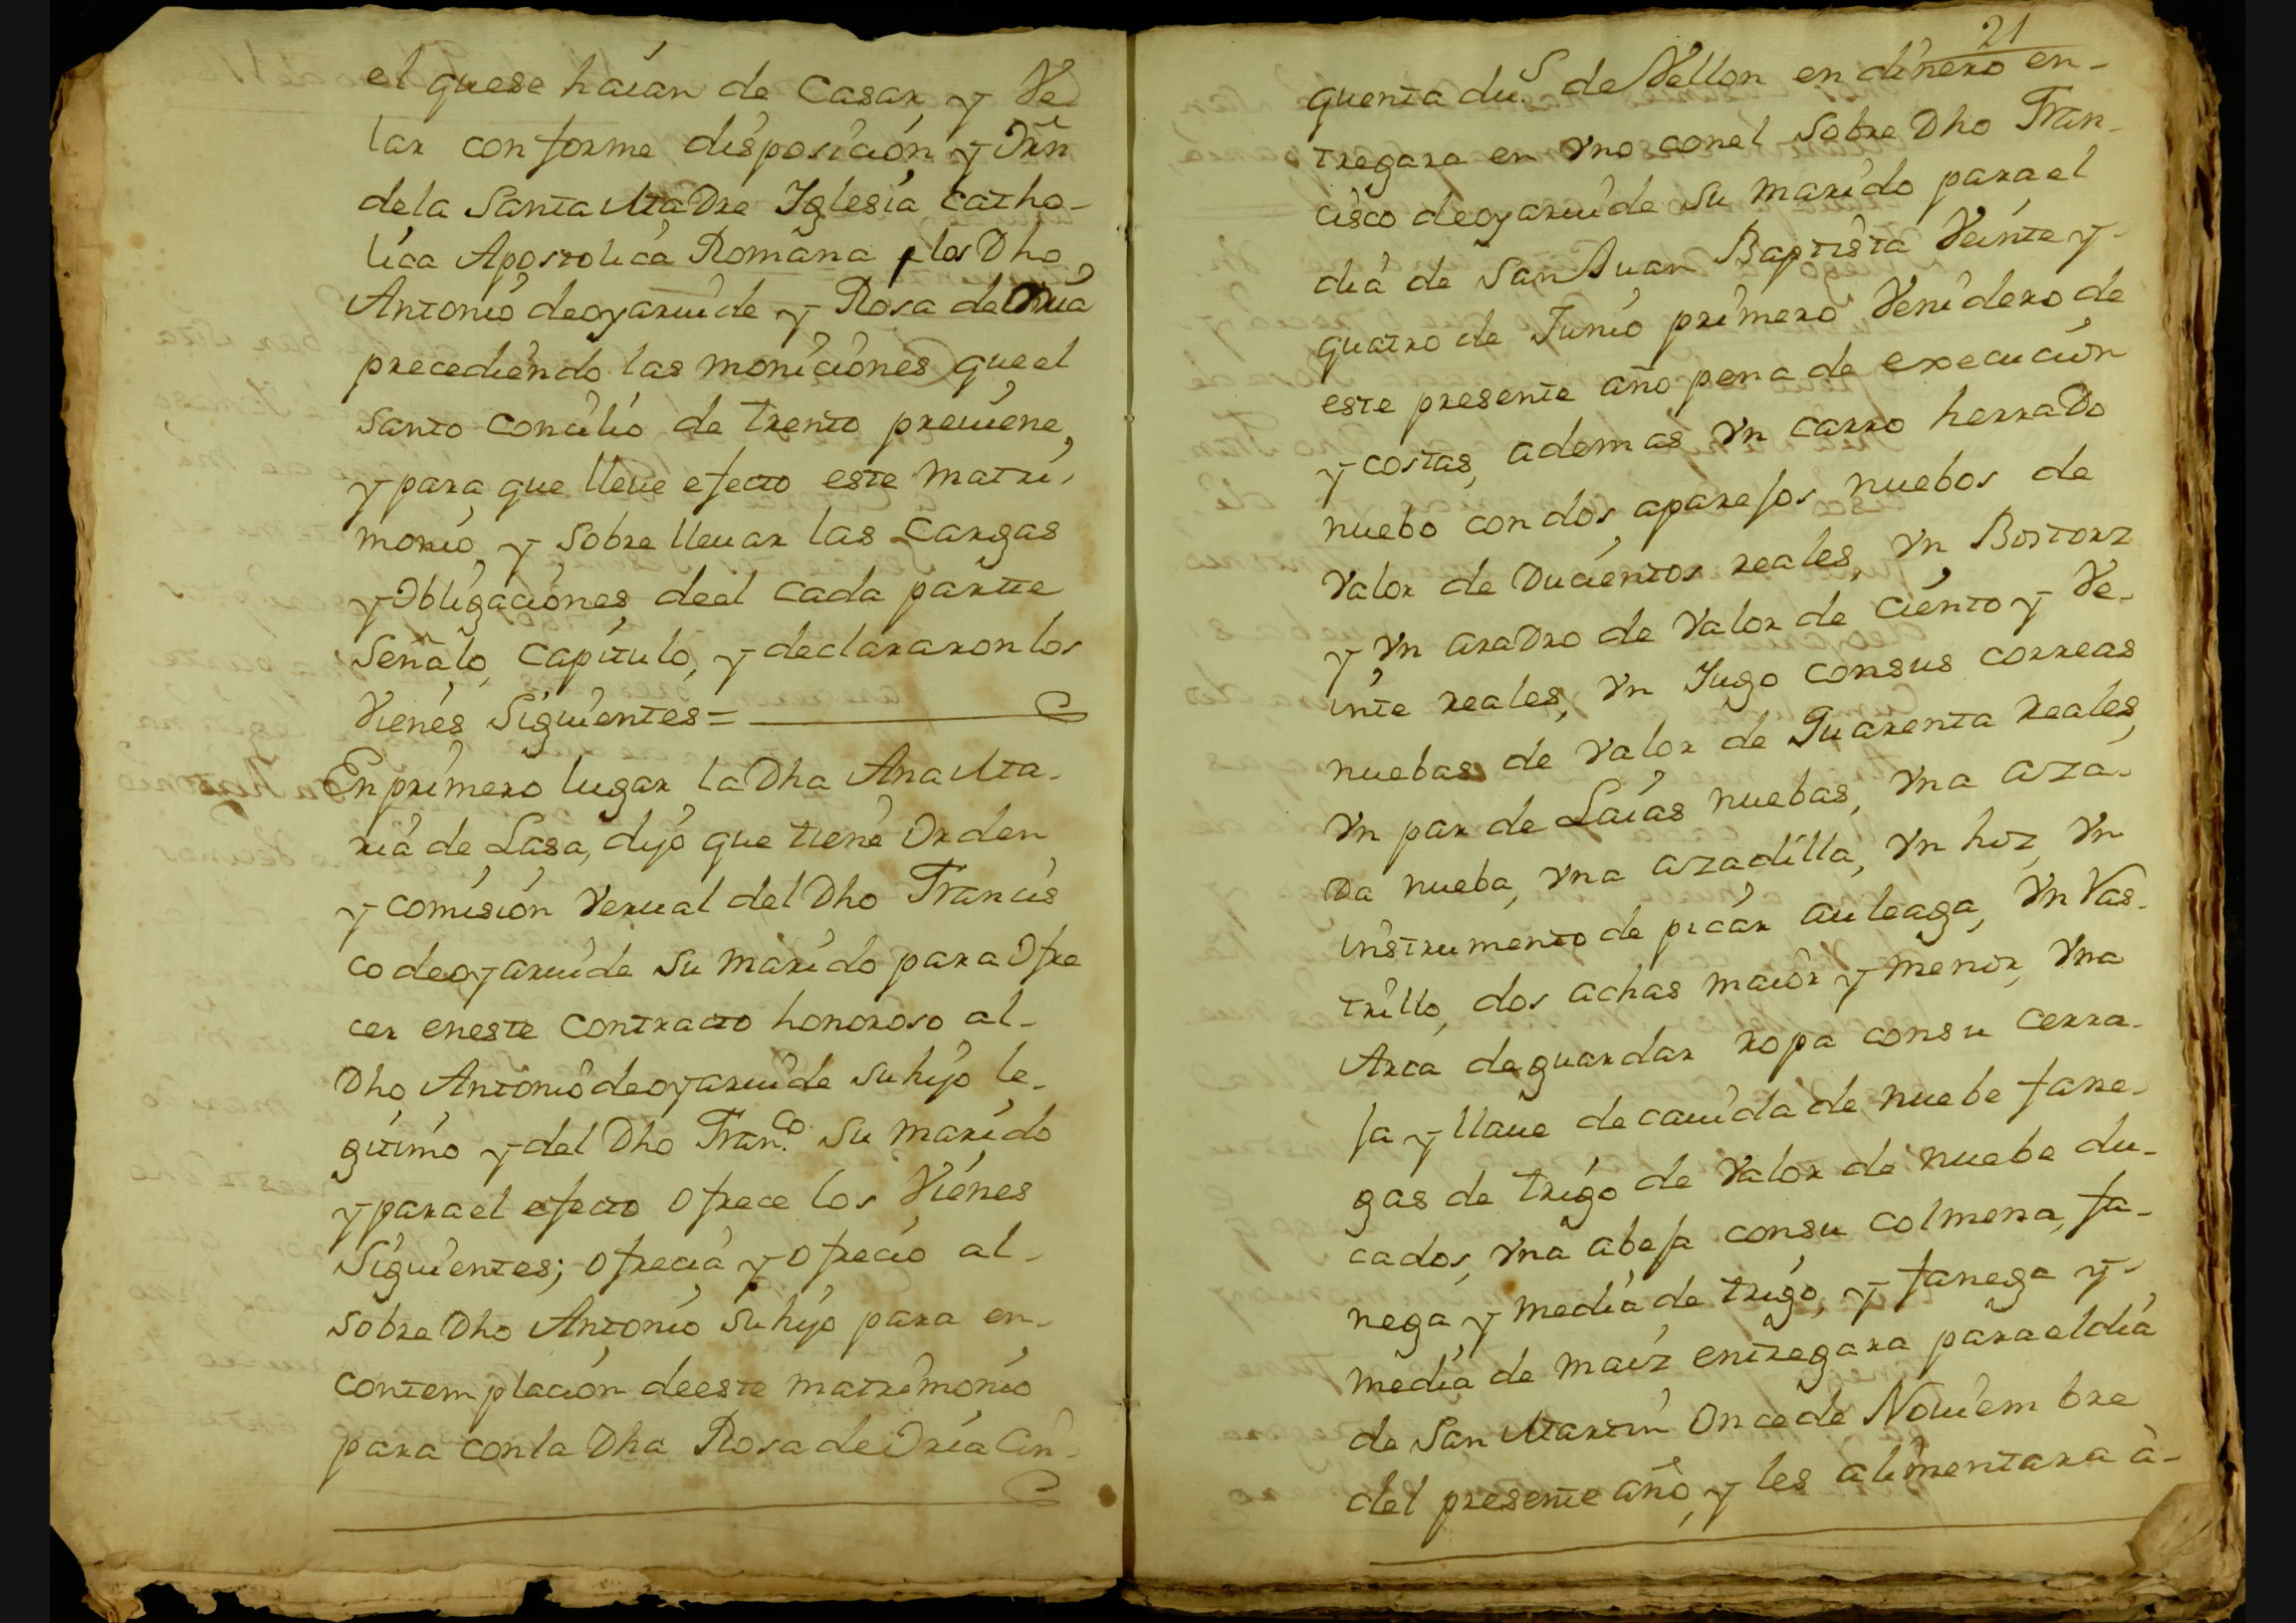 el quese haian de Casar y Ve
lar conforme disposicion y Orñ
dela Santa Madre Iglesia catho-
lica Apostolica Romana los Dho
Antonio deoyaruide y Rosa de Oria
precediendo las moniciones que el
santo concilio de trento preuiene,
y para que lleue efecto este matri,
monio, y sobre lleuar las Cargas
y Obligaciones deel cada partte
Señalo, Capitulo, y declararonlos
Vienes Siguientes=
En primero lugar la Dha Ana Ma-
ria de Lasa, dijo que tiene Orden
y comision Verual del Dho Francis
co deoyaruide su marido para Ofre
cer eneste Contracto honoroso al-
Dho Antonio deoyaruide su hijo le-
gitimo y del Dho Fran.co su marido
y parael efecto ofrece los Vienes
Siguientes; ofrecia y ofrecio al-
sobre Dho Antonio su hijo para en-
contemplacion deeste matrimonio
para conla Dha Rosa de Oria Cin-
21
quenta du.s de Vellon en dinero en-
tregara en vno conel sobre Dho Fran-
cisco deoyaruide su marido parael
dia de San Juan Baptista Veinte y-
quatro de Junio primero Venidero de
este presente año pena de execucion
y costas, ademas vn carro herrado
nuebo con dos aparejos nuebos de
valor de Ducientos reales, vn Bostorz
y vn aradro de valor de ciento y Ve-
inte reales, vn Jugo consus correas
nuebas de valor de Quarenta reales,
vn par de Laias nuebas, vna aza-
Da nueba, vna azadilla, vn hoz, vn
instrumento de picar auleaga, vn Vas-
trillo, dos achas maior y menor, vna
Arca deguardar ropa consu cerra-
ja y llaue decauida de nuebe fane-
gas de trigo de valor de nuebe du-
cados, vna abeja consu colmena, fa-
nega y media de trigo, y fanega y-
media de maiz entregara parael dia
de San Martin Oncede Nouiembre
del presente año, y les alimentara à-